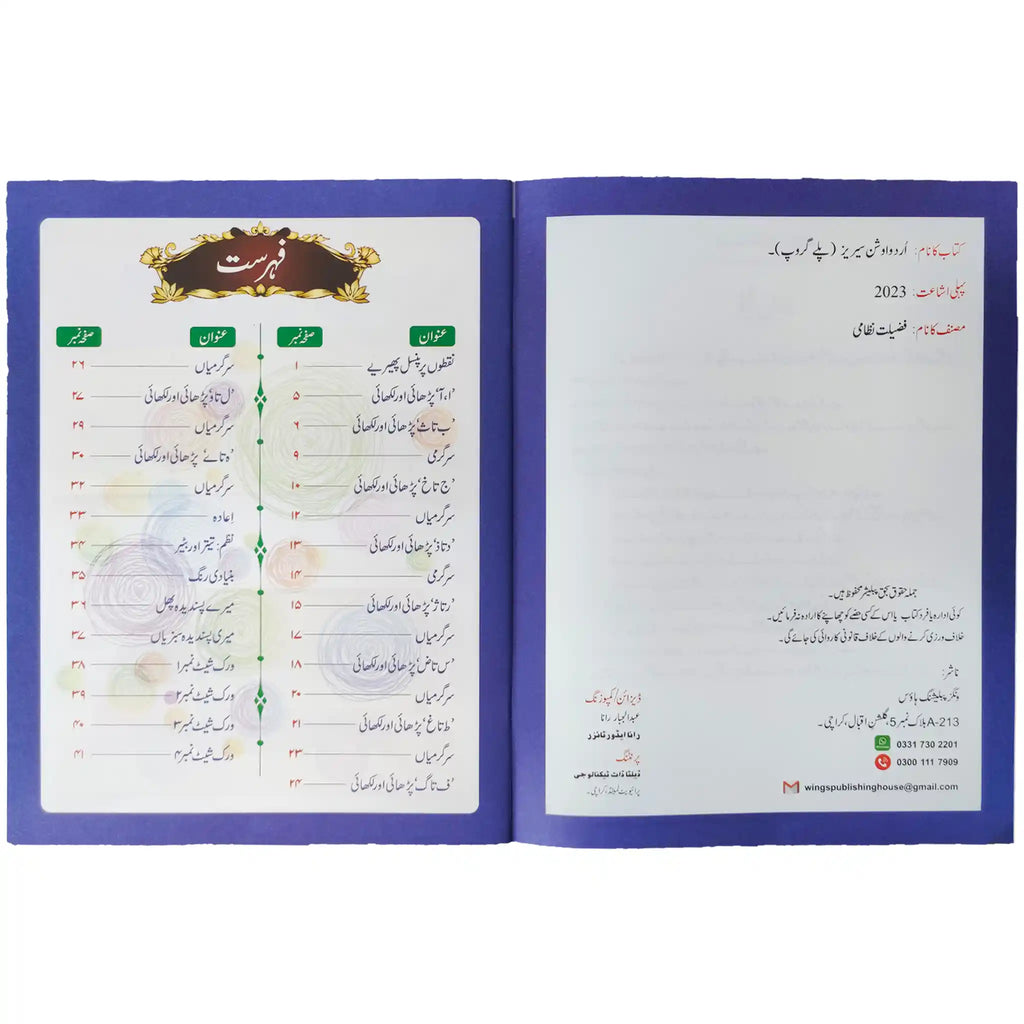 کتاب کا نام: اُردو اوشن سیریز (پلے گروپ)۔
پہلی اشاعت: 2023
مصنف کا نام: فضیلت نظامی
جملہ حقوق بحق پبلیشر محفوظ ہیں۔
کوئی ادارہ یا فرد کتاب یا اس کے کسی حصّے کو چھاپنے کا ارادہ نہ فرمائیں۔
خلاف ورزی کرنے والوں کے خلاف قانونی کاروائی کی جائے گی۔
ناشر:
ونگز پبلیشنگ ہاؤس
A-213 بلاک نمبر 5، گلشن اقبال، کراچی۔
0331 730 2201
0300 111 7909
wingspublishinghouse@gmail.com
ڈیزائن/کمپوزنگ
عبدالجبار رانا
رانا ایڈورٹائزر
پرنٹنگ
ڈیلٹا ڈاٹ ٹیکنالوجی
پرائیویٹ لمیٹڈ، کراچی۔
فہرست
عنوان صفحہ نمبر
نقطوں پر پنسل پھیریے ۱
’ا، آ‘ پڑھائی اور لکھائی ۵
’ب تا ث‘ پڑھائی اور لکھائی ۶
سرگرمی ۹
’ج تا خ‘ پڑھائی اور لکھائی ۱۰
سرگرمیاں ۱۲
’د تا ذ‘ پڑھائی اور لکھائی ۱۳
سرگرمی ۱۴
’ر تا ژ‘ پڑھائی اور لکھائی ۱۵
سرگرمیاں ۱۷
’س تا ض‘ پڑھائی اور لکھائی ۱۸
سرگرمیاں ۲۰
’ط تا غ‘ پڑھائی اور لکھائی ۲۱
سرگرمیاں ۲۳
’ف تا گ‘ پڑھائی اور لکھائی ۲۴
عنوان صفحہ نمبر
سرگرمیاں ۲۶
’ل تا و‘ پڑھائی اور لکھائی ۲۷
سرگرمیاں ۲۹
’ہ تا ے‘ پڑھائی اور لکھائی ۳۰
سرگرمیاں ۳۲
اِعادہ ۳۳
نظم: تیتر اور بٹیر ۳۴
بنیادی رنگ ۳۵
میرے پسندیدہ پھل ۳۶
میری پسندیدہ سبزیاں ۳۷
ورک شیٹ نمبر ۱ ۳۸
ورک شیٹ نمبر ۲ ۳۹
ورک شیٹ نمبر ۳ ۴۰
ورک شیٹ نمبر ۴ ۴۱